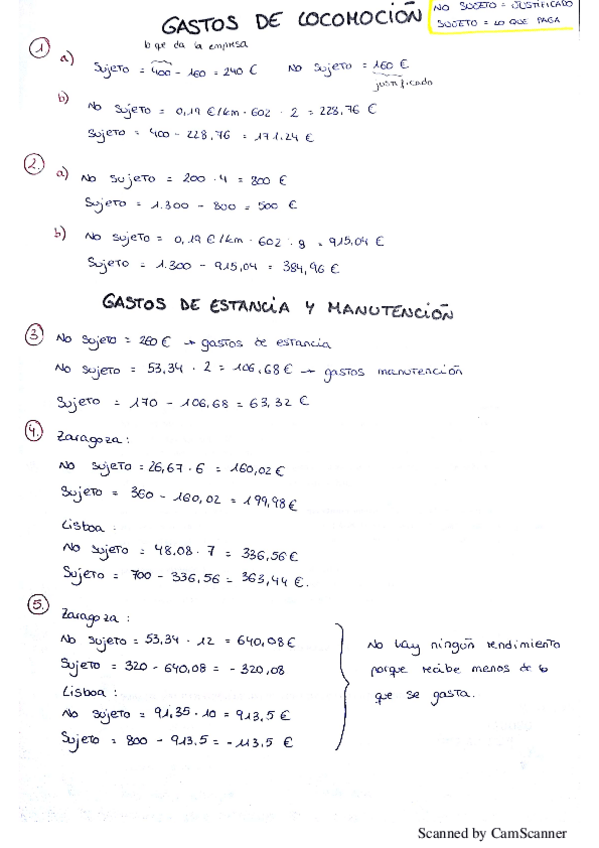 GASTOS DE LOCOMOCIÓN
NO SUJETO = JUSTIFICADO
SUJETO = LO QUE PAGA
lo que da la empresa
1 a) Sujeto = 400 - 160 = 240 € No Sujeto = 160 €
justificado
b) No Sujeto = 0,19 €/km · 602 · 2 = 228,76 €
Sujeto = 400 - 228,76 = 171.24 €
2. a) No Sujeto = 200 · 4 = 800 €
Sujeto = 1.300 - 800 = 500 €
b) No Sujeto = 0,19 €/km · 602 · 8 = 915,04 €
Sujeto = 1.300 - 915,04 = 384,96 €
GASTOS DE ESTANCIA Y MANUTENCIÓN
3) No Sujeto = 260 € → gastos de estancia
No Sujeto = 53,34 · 2 = 106,68 € → gastos manutención
Sujeto = 170 - 106,68 = 63,32 €
4. Zaragoza:
No Sujeto = 26,67 · 6 = 160,02 €
Sujeto = 360 - 160,02 = 199,98 €
Lisboa:
No Sujeto = 48.08 · 7 = 336,56 €
Sujeto = 700 - 336,56 = 363,44 €.
5. Zaragoza:
No Sujeto = 53,34 · 12 = 640,08 €
Sujeto = 320 - 640,08 = - 320,08
Lisboa:
No Sujeto = 91,35 · 10 = 913,5 €
Sujeto = 800 - 913.5 = - 113.5 €
No hay ningún rendimiento
porque recibe menos de lo
que se gasta.
Scanned by CamScanner